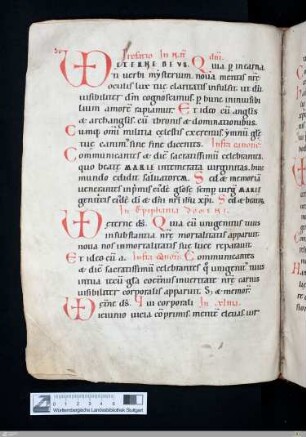 Prefatio In Nat̄ dn̄i.
ETERNE DEUS. Quia p incarna
ti uerbi mysterium. noua mentis nrē
oculis lux tuę claritatis infulsit. ut dū
uisibiliter dm̄ cognoscimus. p hunc inuisibili
um amorē rapiamur. Et ideo cū anglis
& archanglis. cū thronis & dominationibus.
Cumq; om̄i militia cęlestis exercitus ymnū glę
tuę canim' sine fine dicentes. Infra canonē.
Communicantes & diē sacratissimū celebrantes.
quo beatę MARIE intemerata uirginitas. huic
mundo edidit saluatorem. Sed & memoriā
uenerantes inprimis eiūdē gl̄osę semp uirg̃ MARIE
genitricis eiūdē dī & dn̄i nr̄i ihu xp̄i. Sed &
In Epiphania Domini.
eterne ds̄. Quia cū unigenitus tuus
in substantia nrē mortalitatis apparuit.
noua nos inmortalitatis suę luce reparauit.
Et ideo cū a. Infra canonē. Communicantes
& diē sacratissimū celebrantes q̊ unigenit' tuus
in tua tecū glā coetn'us in ueritate nrē carnis
uisibiliter corporalis apparuit. S; & memor̄.
eterne ds̄. Qui corporali In xlma
ieiunio uicia cōprimis. mentē eleuas uir
Württembergische Landesbibliothek Stuttgart